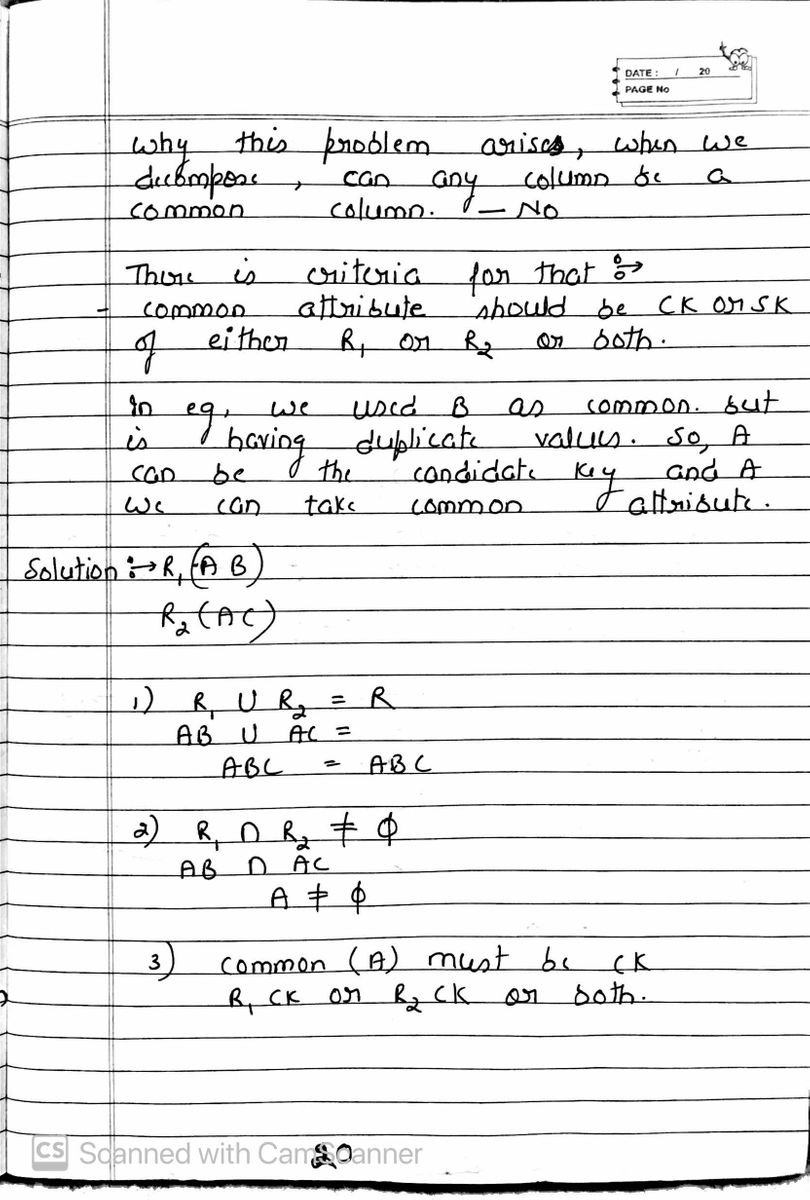 DATE : / 20
PAGE No
why this problem arises, when we
decompose, can any column be a
common column. - No
There is criteria for that :→
- common attribute should be CK or SK
of either R₁ or R₂ or both.
In eg, we used B as common. but
is having duplicate values. So, A
can be the candidate key and A
we can take common attribute.
Solution :→ R₁ (A B)
R₂ (AC)
1) R₁ ∪ R₂ = R
AB ∪ AC =
ABC = ABC
2) R₁ ∩ R₂ ≠ ϕ
AB ∩ AC
A ≠ ϕ
3) common (A) must be CK
R₁ CK or R₂ CK or both.
CS Scanned with CamScanner
20